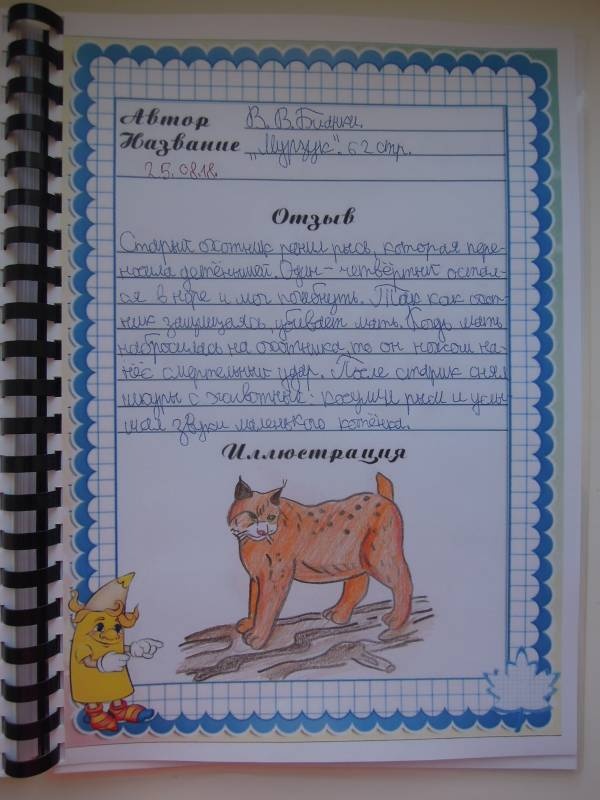 Автор В. В. Бианки.
Название „Мурзук". 62 стр.
25.08.18.
Отзыв
Старый охотник ранил рысь, которая пере-
носила детёнышей. Один - четвёртый остал-
ся в норе и мог погибнуть. Так как охот-
ник защищаясь, убивает мать. Когда мать
набросилась на охотника то он ножом на-
нёс смертельный удар. После старик снял
шкуры с животных: косули и рыси и услы
шал звуки маленького котёнка.
Иллюстрация